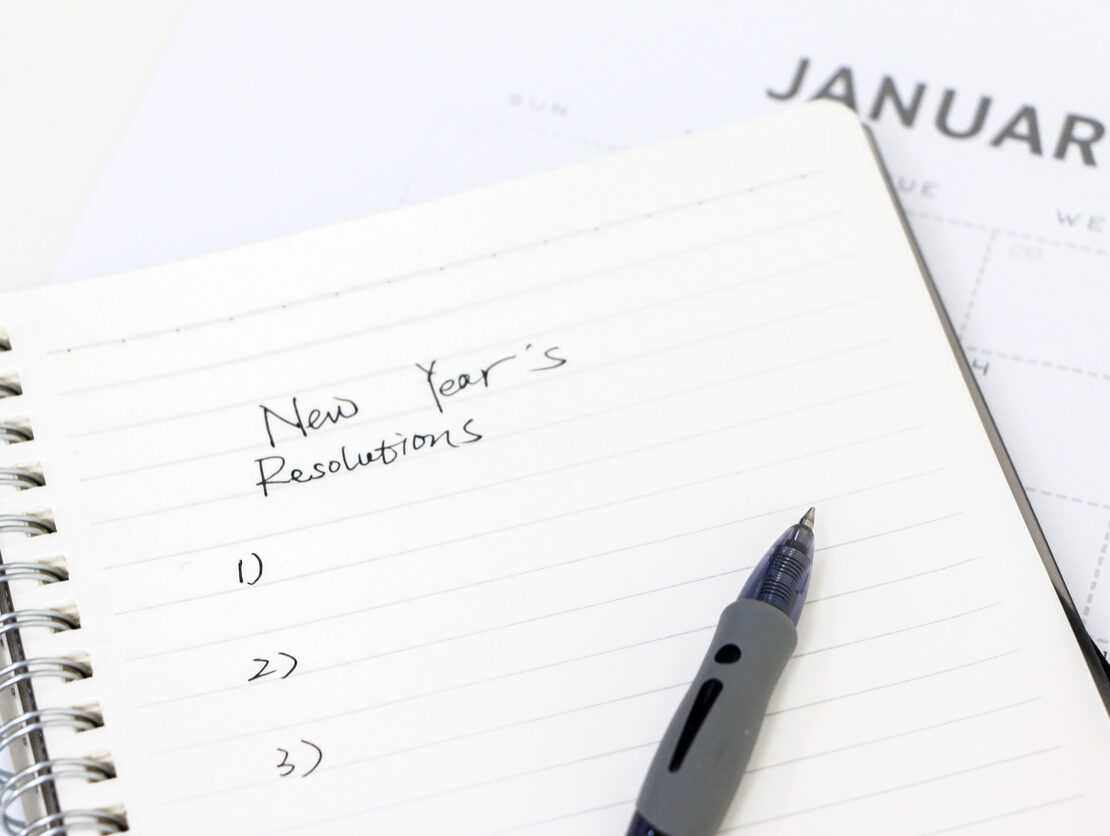 JANUAR
SUN
UE
WE
28
4
New Year's
Resolutions
1)
2)
3)